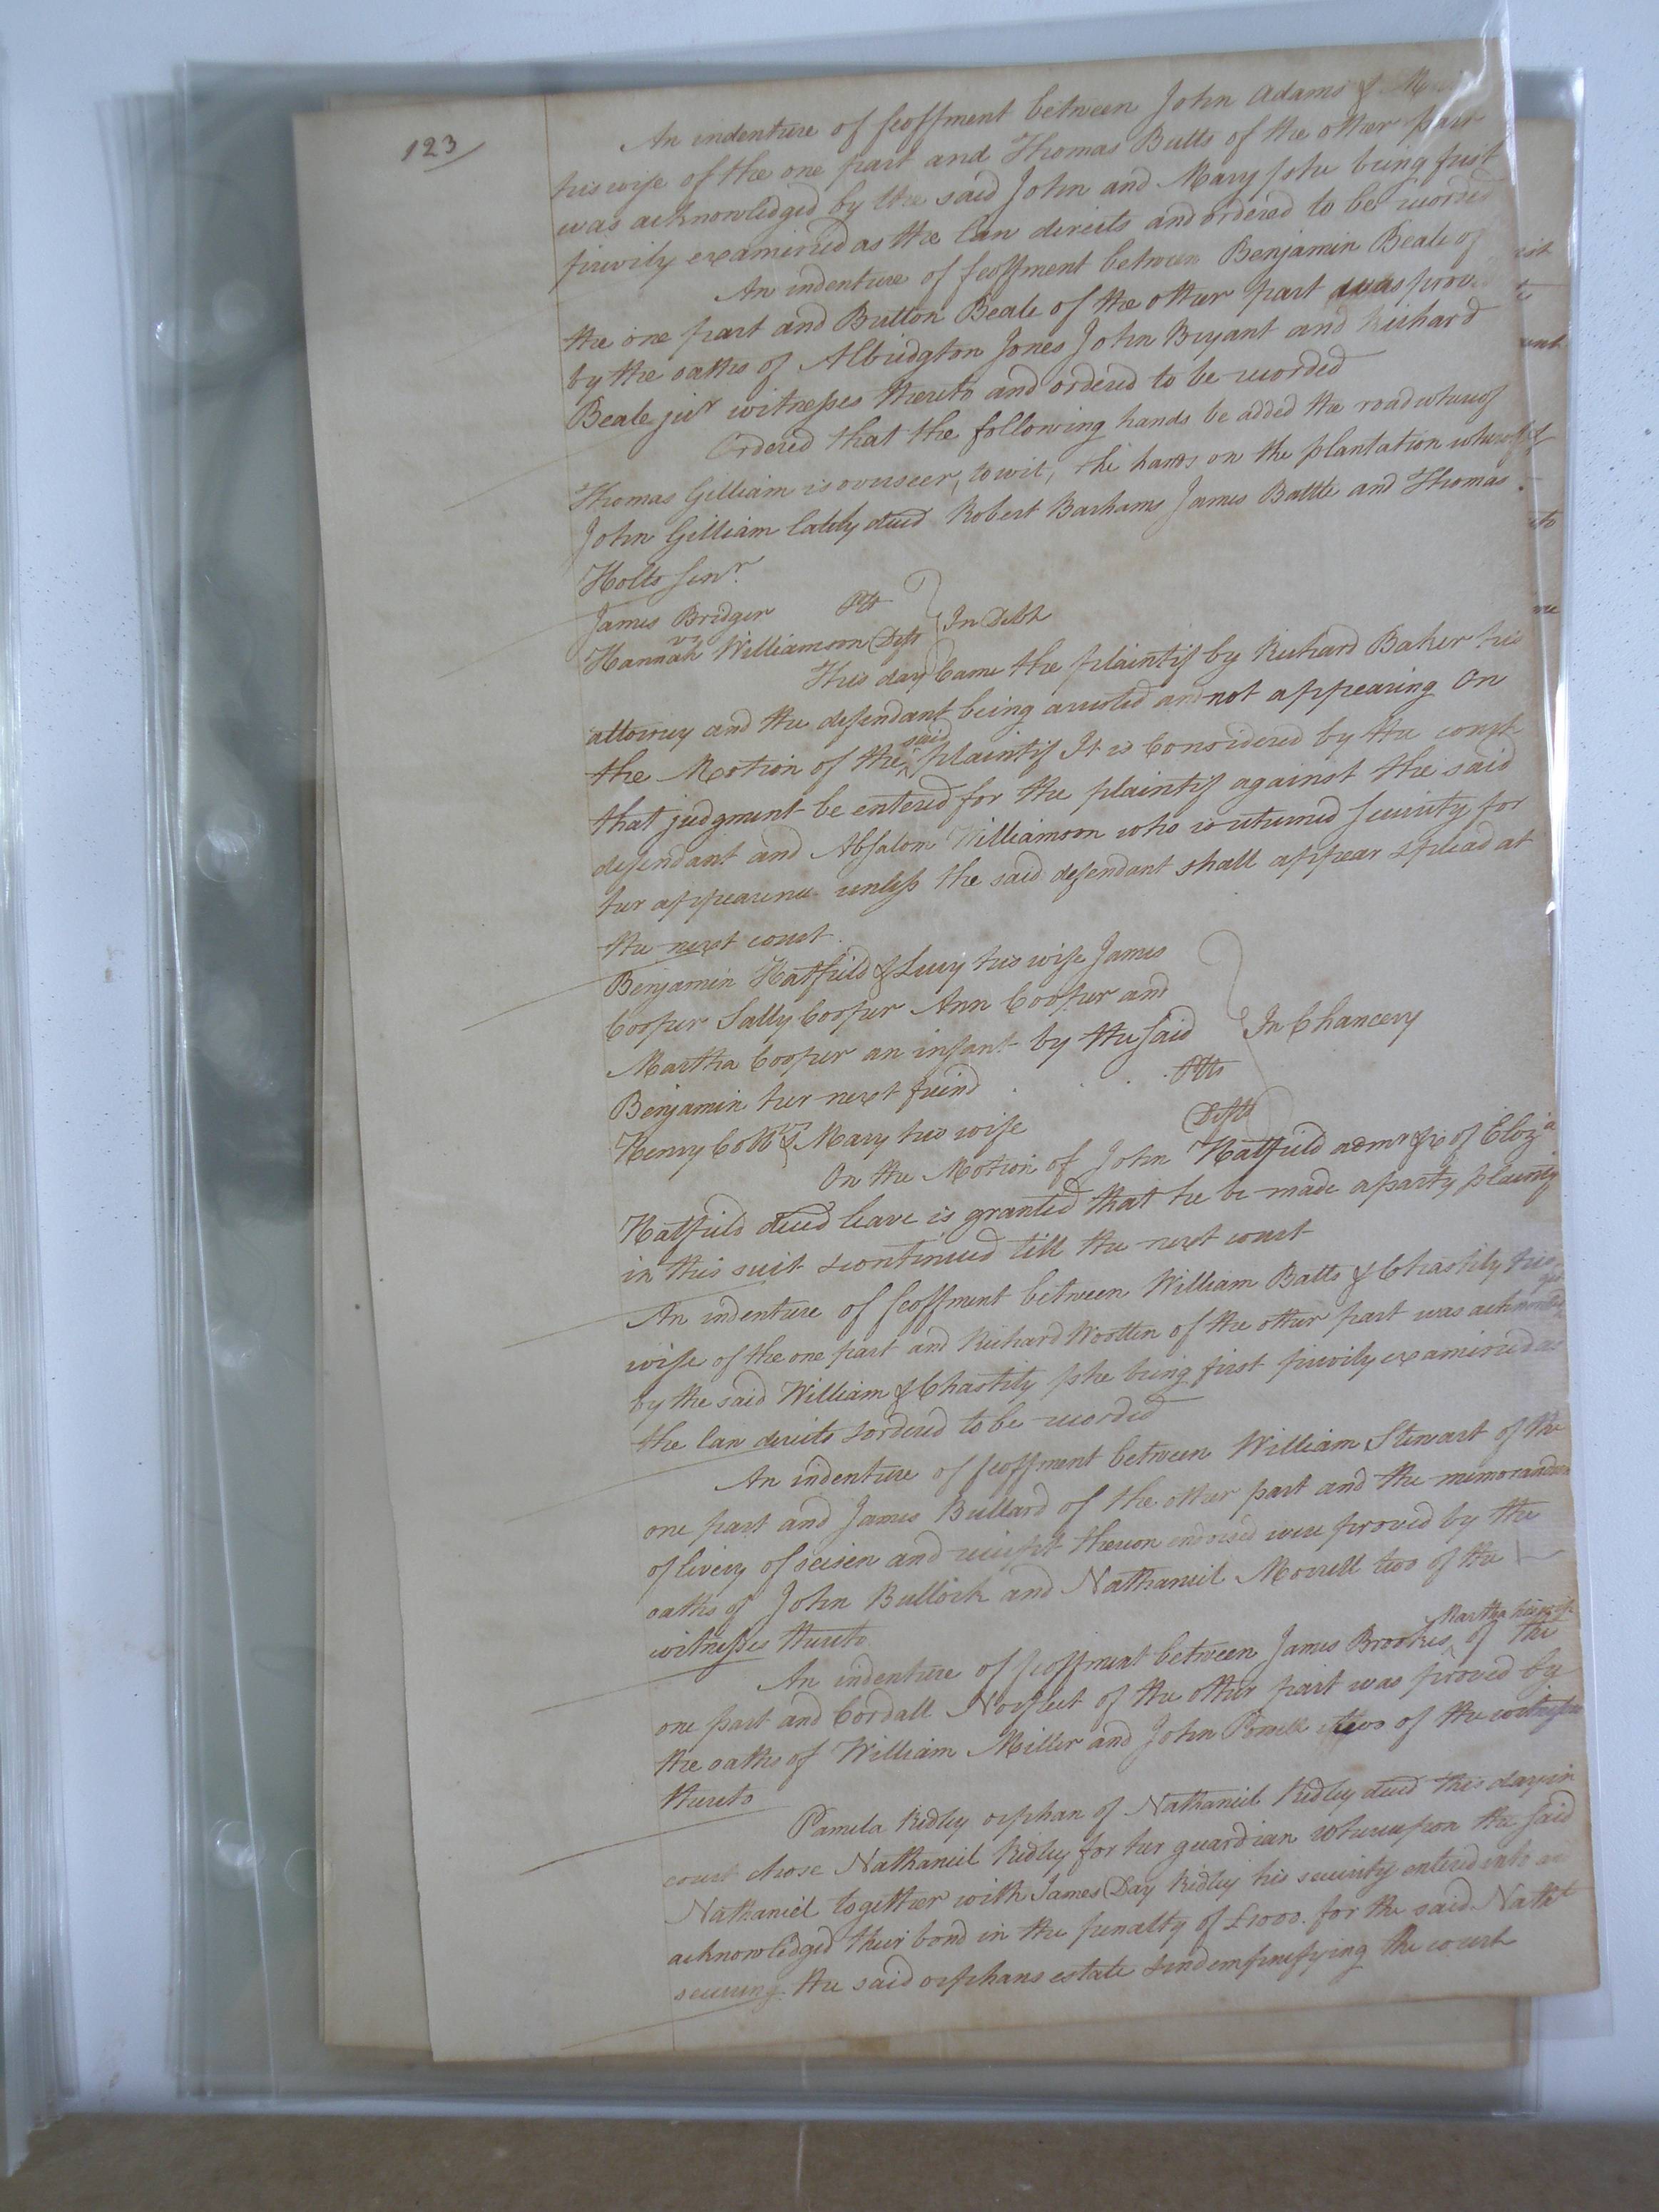 123
An indenture of feoffment between John Adams &
his wife of the one part and Thomas Butts of the other part
was acknowledged by the said John and Mary she being first
privily examined as the law directs and ordered to be recorded
An indenture of feoffment between Benjamin Beale of
the one part and Button Beale of the other part was prov
by the oaths of Albridgton Jones John Bryant and Richard
Beale junr witnesses thereto and ordered to be recorded
Ordered that the following hands be added the road whereof
Thomas Gilliam is overseer, towit, the hands on the plantation whereof
John Gilliam lately decd Robert Barhams James Battle and Thomas
Holts senr.
James Bridger Plt
vs In Debt
Hannah Williamson Deft
This day came the plaintif by Richard Baker his
attorney and the defendant being arrested and not appearing On
the Motion of the said plaintif It is Considered by the court
that judgment be entered for the plaintif against the said
defendant and Absalom Williamson who is returned security for
her appearance unless the said defendant shall appear & plead at
the next court.
Benjamin Hatfield & Lucy his wife James
Cooper Sally Cooper Ann Cooper and
Martha Cooper an infant by the said In Chancery
Benjamin her next friend . . . Plts
vs
Henry Cobb & Mary his wife Defts
On the Motion of John Hatfield admr &c of Eliza
Hatfield decd leave is granted that he be made a party plaintif
in this suit & continued till the next court
An indenture of feoffment between William Batts & Chastity his
wife of the one part and Richard Wootten of the other part was acknowled
by the said William & Chastity she being first privily examined as
the law directs & ordered to be recorded
An indenture of feoffment between William Stewart of the
one part and James Bullard of the other part and the memorandum
of livery of seisen and receipt thereon endorsed were proved by the
oaths of John Bullock and Nathaniel Morrell two of the
witnesses thereto
An indenture of feoffment between James Brookes Martha his wife of the
one part and Cordall Norfleet of the other part was proved by
the oaths of William Miller and John Powell two of the witnesses
thereto
Pamela Ridley orphan of Nathaniel Ridley decd this day in
court chose Nathaniel Ridley for her guardian whereupon the said
Nathaniel together with James Day Ridley his security entered into &
acknowledged their bond in the penalty of £1000. for the said Nathl
securing the said orphans estate & indempnifying the court